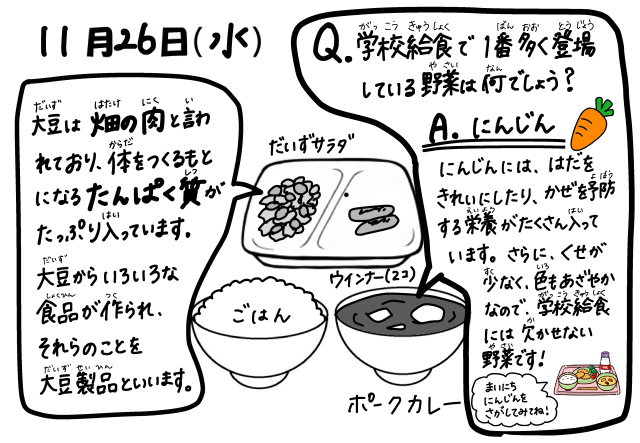 11月26日(水)
Q.学校給食で1番多く登場
している野菜は何でしょう?
A.にんじん
にんじんには、はだを
きれいにしたり、かぜを予防
する栄養がたくさん入って
います。さらに、くせが
少なく、色もあざやか
なので、学校給食
には欠かせない
野菜です!
まいにち
にんじんを
さがしてみてね!
大豆は畑の肉と言わ
れており、体をつくるもと
になるたんぱく質が
たっぷり入っています。
大豆からいろいろな
食品が作られ、
それらのことを
大豆製品といいます。
だいずサラダ
ウインナー(2コ)
ごはん
ポークカレー